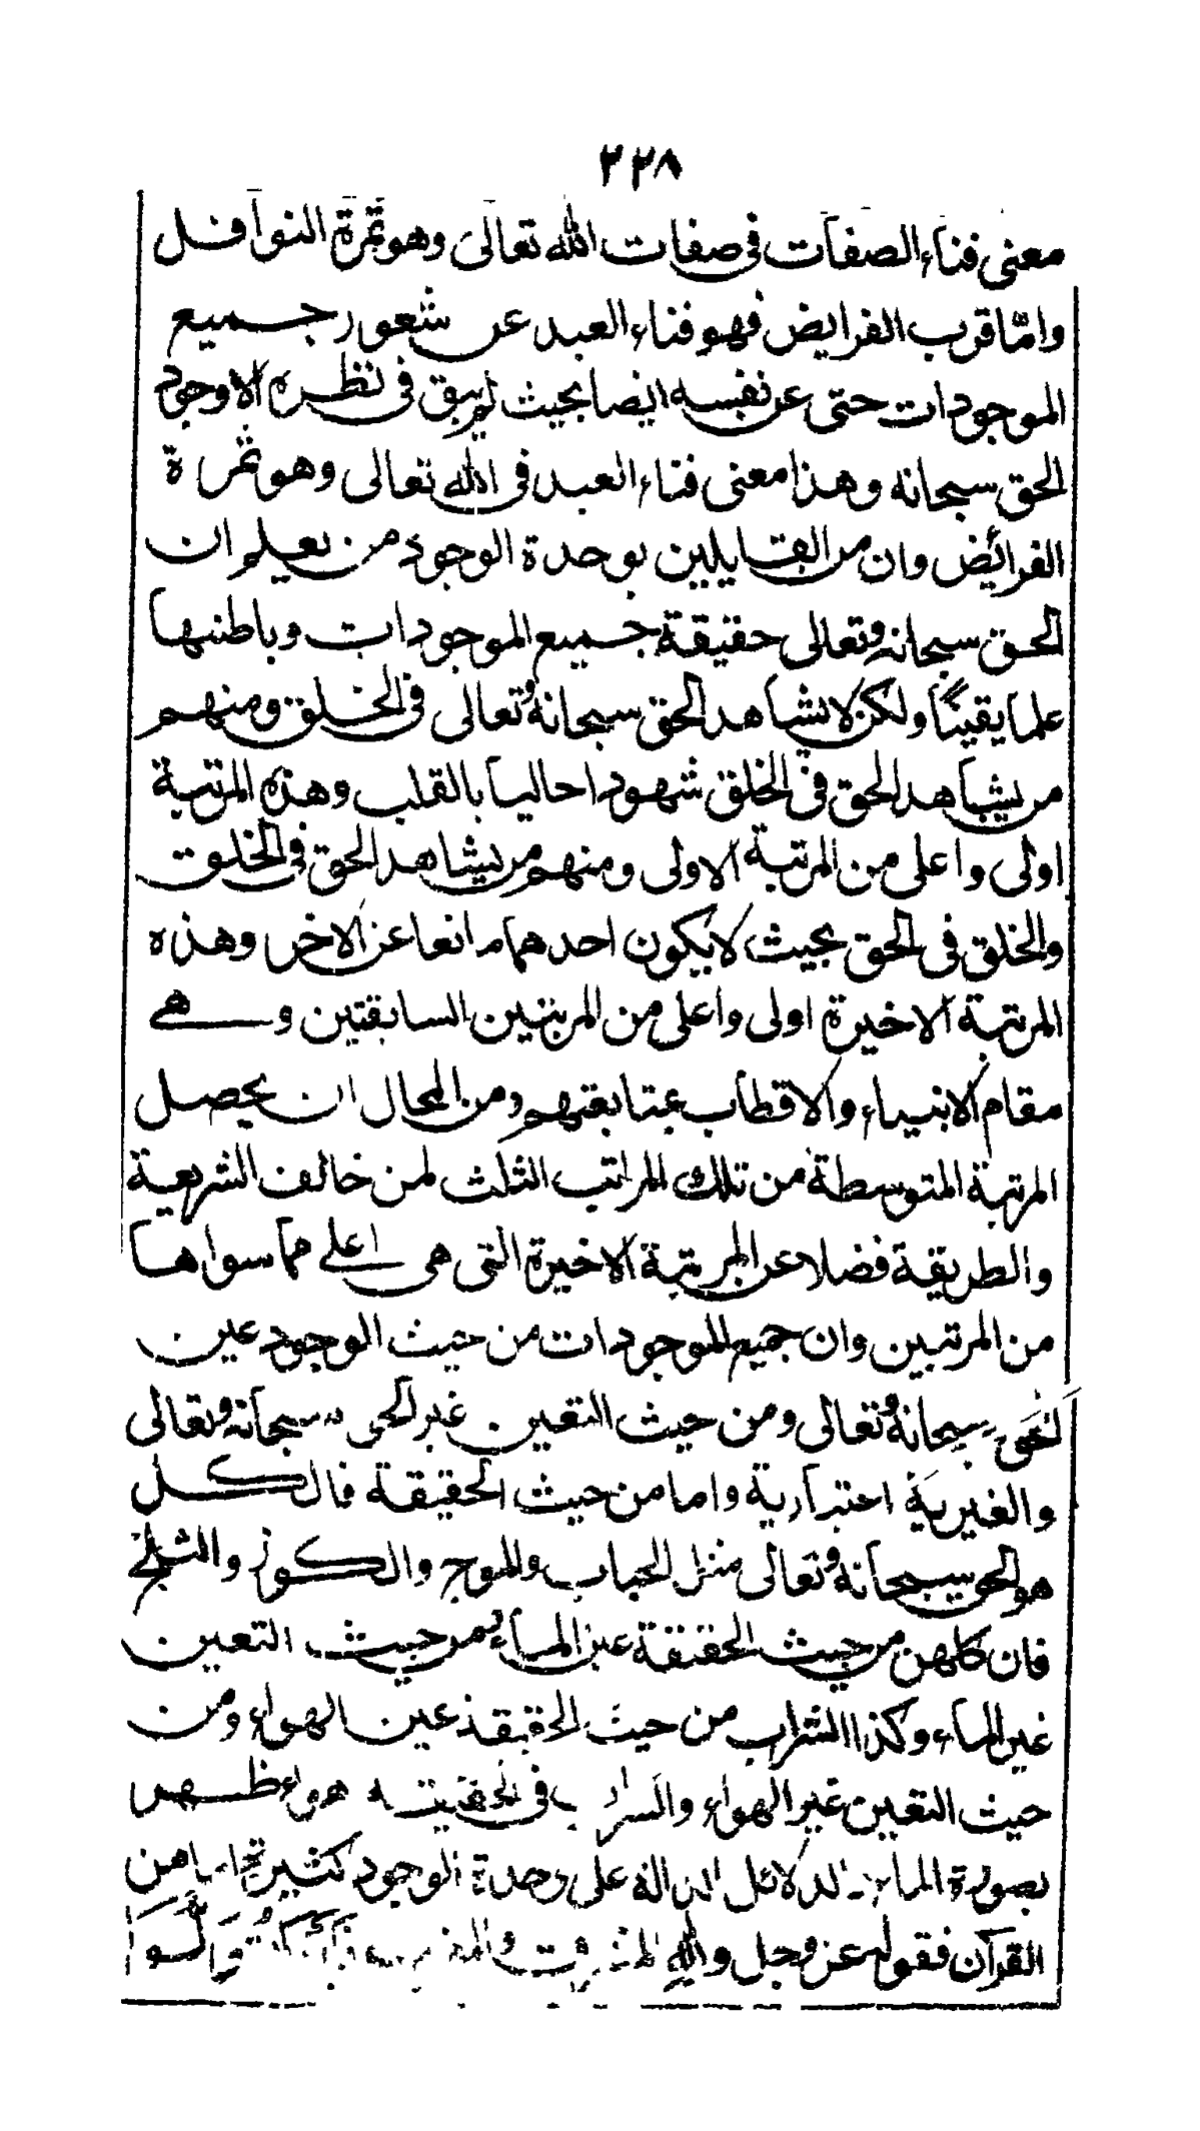 ٢٢٨
معنى فناء الصفات فى صفات الله تعالى وهو ثمرة النوافل
واما قرب الفرايض فهو فناء العبد عن شعور جميع
الموجودات حتى عن نفسه ايضا بحيث لم يبق فى نظره الا وجود
الحق سبحانه وهذا معنى فناء العبد فى الله تعالى وهو ثمرة
الفرائض وان من القايلين بوحدة الوجود من يعلم ان
الحق سبحانه وتعالى حقيقة جميع الموجودات وباطنها
علما يقينا ولكن لا يشاهد الحق سبحانه وتعالى فى الخلق ومنهم
من يشاهد الحق فى الخلق شهودا حاليا بالقلب وهذه المرتبة
اولى واعلى من المرتبة الاولى ومنهم من يشاهد الحق فى الخلق
والخلق فى الحق بحيث لا يكون احدهما مانعا عن الاخر وهذه
المرتبة الاخيرة اولى واعلى من المرتبتين السابقتين وهى
مقام الانبياء والاقطاب بمتابعتهم ومن المحال ان يحصل
المرتبة المتوسطة من تلك المراتب الثلث لمن خالف الشريعة
والطريقة فضلا عن المرتبة الاخيرة التى هى اعلى مما سواها
من المرتبين وان جميع الموجودات من حيث الوجود عين
الحق سبحانه وتعالى ومن حيث التعين غير الحق سبحانه وتعالى
والغيرية اعتبارية واما من حيث الحقيقة فالكل
هو الحق سبحانه وتعالى مثل الحباب والموج والكوز والثلج
فان كلهن من حيث الحقيقة عين الماء ومن حيث التعين
غير الماء وكذا الشراب من حيث الحقيقة عين الهواء ومن
حيث التعين غير الهواء والسراب فى الحقيقة هواء ظهر
بصورة الماء الدلائل الدالة على وحدة الوجود كثيرة اما من
القرآن فقوله عز وجل ولله المشرق والمغرب فاينما تولوا